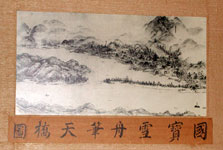 國寶雪舟筆天橋圖